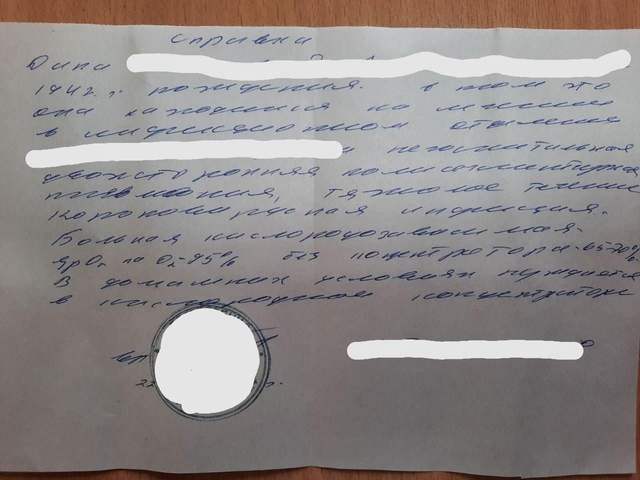 Справка
Дана
1942 г. рождения. в том что
она находится на лечении
в инфекционном отделении
негоспитальная
двухсторонняя полисегментарная
пневмония, тяжолое течение
короновирусная инфекция.
Больная кислородозависимая.
SpO₂ на O₂-85% без концентратора-65-70%.
В домашних условиях нуждается
в кислородном концентраторе
22 г.